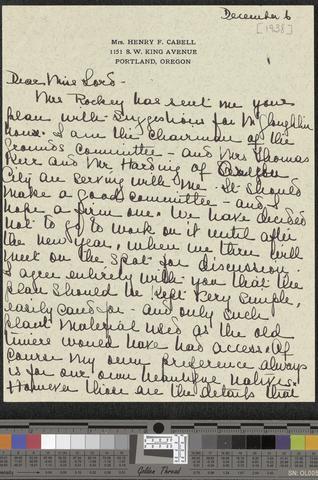 December 6
[1938]
Mrs. HENRY F. CABELL
1151 S. W. KING AVENUE
PORTLAND, OREGON
Dear Miss Lord -
Mrs Rockey has sent me your
plan with suggestions for McLoughlin
house. I am the chairman of the
grounds committee - and Mrs Thomas
Kerr and Mr Harding of Oregon
City are serving with me. It should
make a good committee - and I
hope a firm one. We have decided
not to go to work on it until after
the new year, when we three will
meet on the spot for discussion.
I agree entirely with you that the
plan should be kept very simple,
easily cared for - and only such
plant material used as the old
timers would have had access. Of
course my own preference always
is for our own beautiful natives.
However those are the details that
Golden Thread